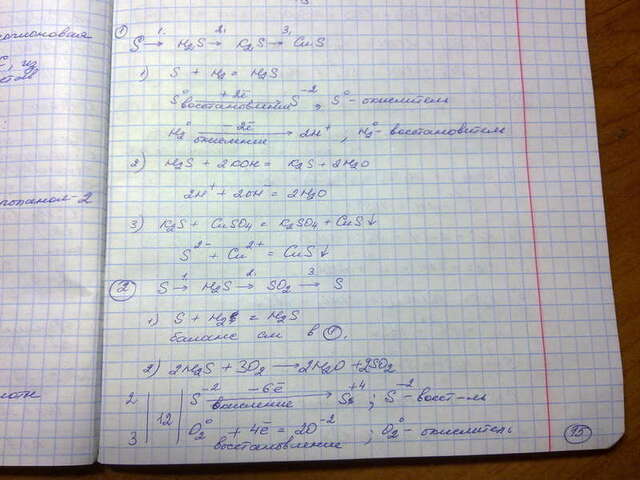 ① S 1.→ H₂S 2.→ K₂S 3.→ CuS
1) S + H₂ = H₂S
S⁰ +2ē восстановления S⁻², S⁰ - окислитель
H₂⁰ −2ē окисление → 2H⁺ ; H₂⁰ - восстановитель
2) H₂S + 2KOH = K₂S + 2H₂O
2H⁺ + 2OH⁻ = 2H₂O
3) K₂S + CuSO₄ = K₂SO₄ + CuS↓
S²⁻ + Cu²⁺ = CuS↓
② S 1.→ H₂S 2.→ SO₂ 3.→ S
1) S + H₂ = H₂S
баланс см в ①.
2) 2H₂S + 3O₂ → 2H₂O + 2SO₂
2 | S⁻² −6ē окисление → S⁺⁴ ; S⁻² - восст-ль
12
3 | O₂⁰ + 4ē = 2O⁻² восстановление ; O₂⁰ - окислитель
из
пропанол-2